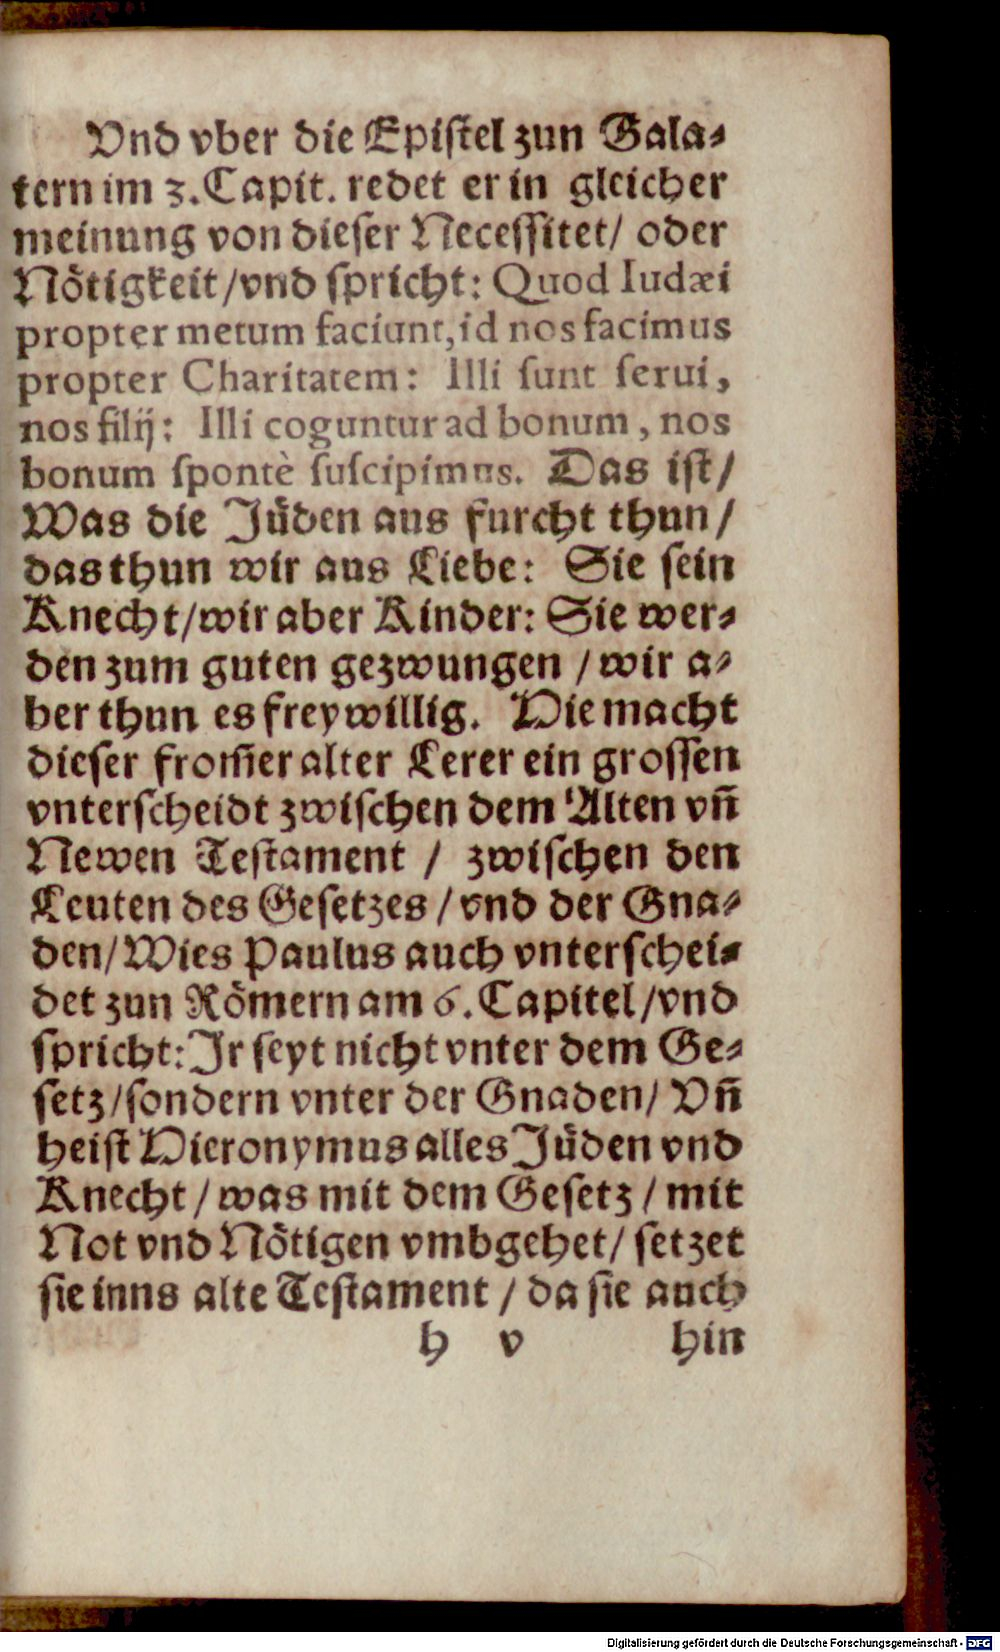 Vnd vber die Epistel zun Gala⸗
tern im 3. Capit. redet er in gleicher
meinung von dieser Necessitet/ oder
Nötigkeit/vnd spricht: Quod Iudæi
propter metum faciunt, id nos facimus
propter Charitatem: Illi sunt serui,
nos filij: Illi coguntur ad bonum, nos
bonum spontè suscipimus. Das ist/
Was die Jüden aus furcht thun/
das thun wir aus Liebe: Sie sein
Knecht/wir aber Kinder: Sie wer⸗
den zum guten gezwungen / wir a⸗
ber thun es freywillig. Hie macht
dieser from̃er alter Lerer ein grossen
vnterscheidt zwischen dem Alten vñ
Newen Testament / zwischen den
Leuten des Gesetzes / vnd der Gna⸗
den/ Wies Paulus auch vnterschei⸗
det zun Römern am 6. Capitel/vnd
spricht: Jr seyt nicht vnter dem Ge⸗
setz/sondern vnter der Gnaden/ Vñ
heist Hieronymus alles Jüden vnd
Knecht / was mit dem Gesetz / mit
Not vnd Nötigen vmbgehet/ setzet
sie inns alte Testament / da sie auch
h v hin
Digitalisierung gefördert durch die Deutsche Forschungsgemeinschaft - DFG